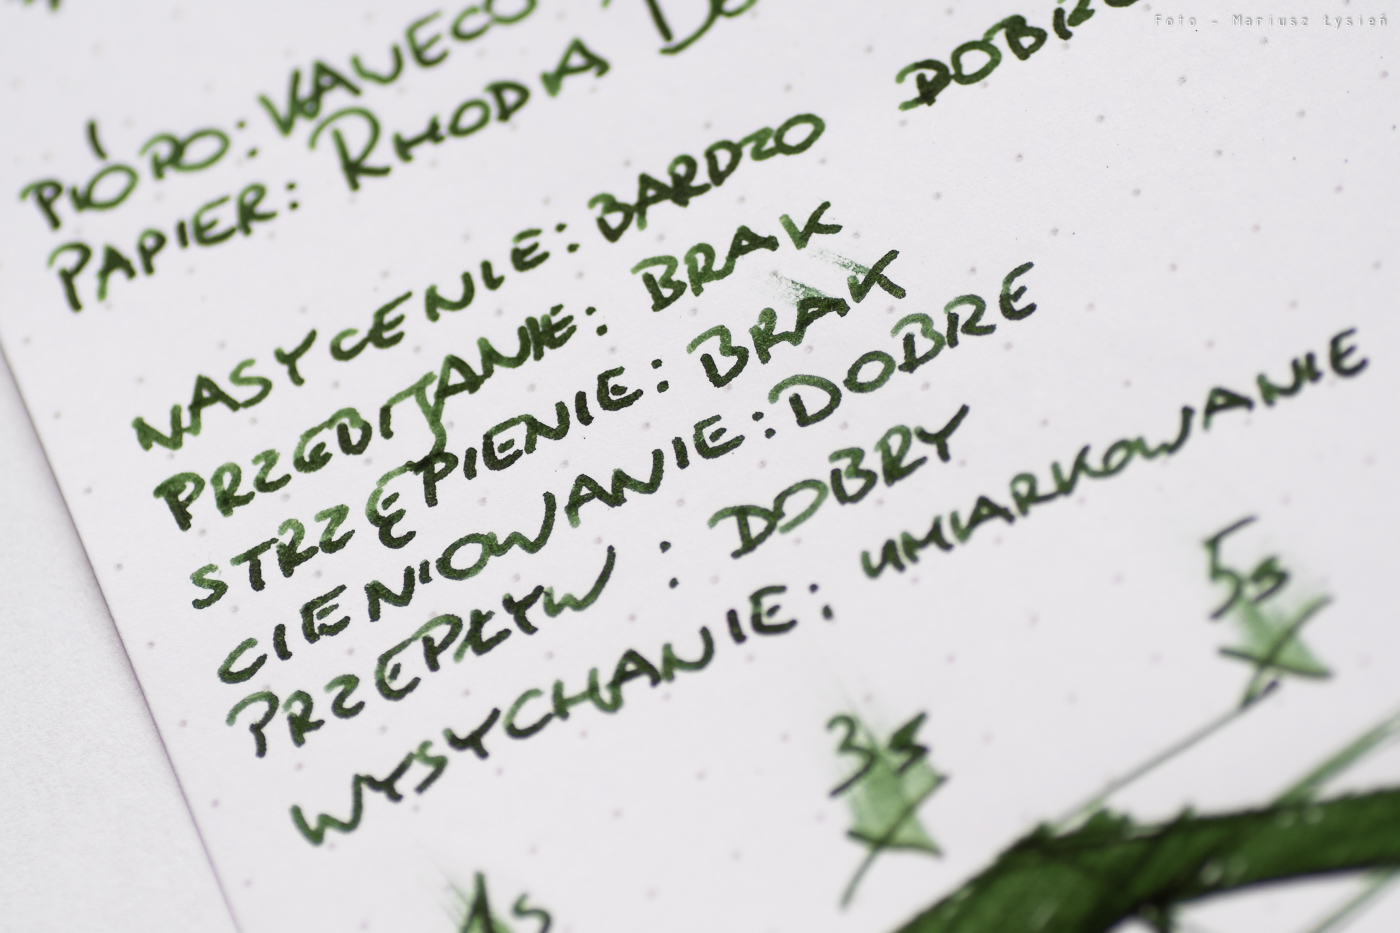 Foto - Mariusz Łysień
PIÓRO: KAWECO
PAPIER: RHODIA DO
NASYCENIE: BARDZO DOBRE
PRZEBIJANIE: BRAK
STRZĘPIENIE: BRAK
CIENIOWANIE: DOBRE
PRZEPŁYW : DOBRY
WYSYCHANIE: UMIARKOWANIE
5s
3s
1s